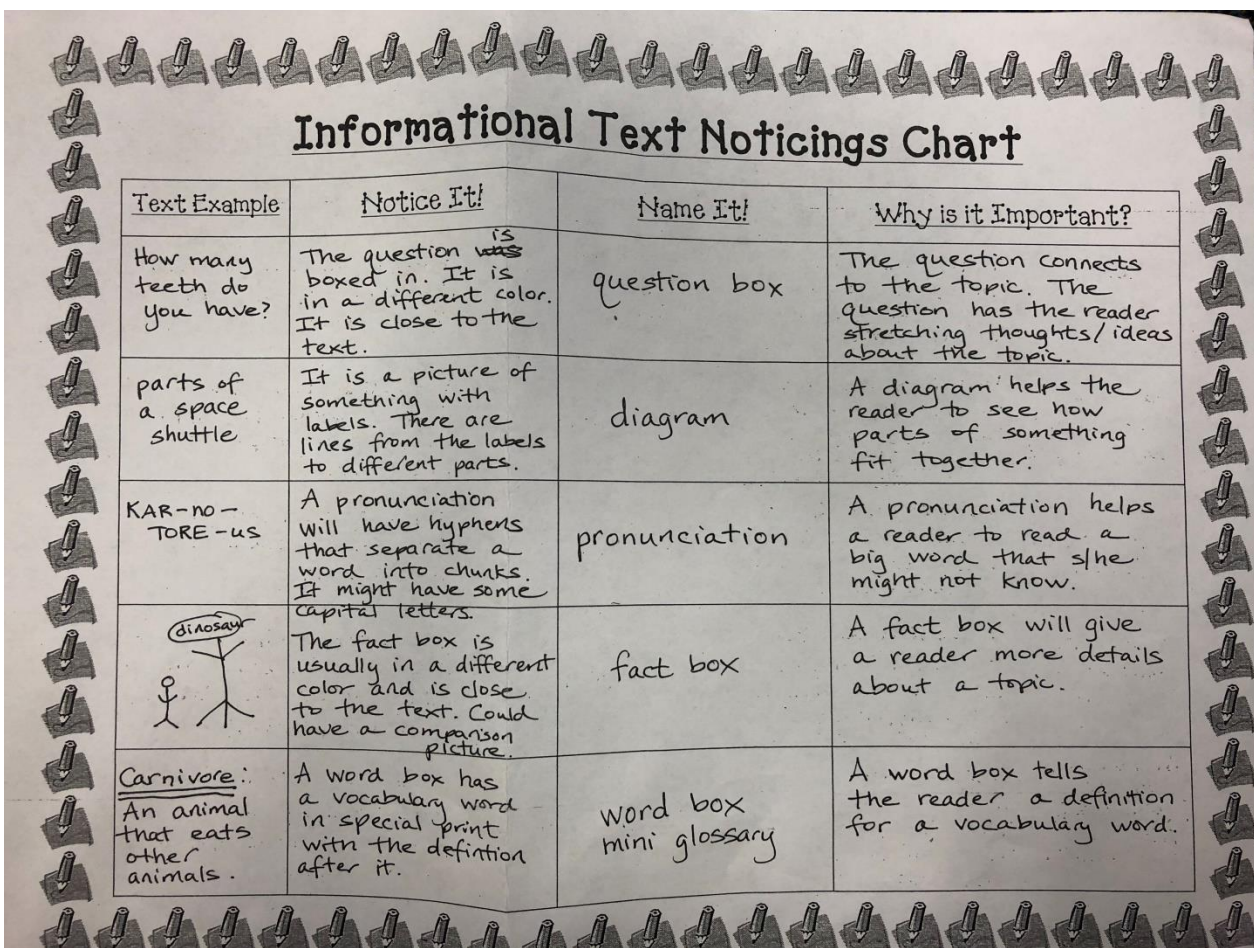 Informational Text Noticings Chart
Text Example
Notice It!
Name It!
Why is it Important?
How many
teeth do
you have?
The question was is
boxed in. It is
in a different color.
It is close to the
text.
question box
The question connects
to the topic. The
question has the reader
stretching thoughts/ideas
about the topic.
parts of
a space
shuttle
It is a picture of
something with
labels. There are
lines from the labels
to different parts.
diagram
A diagram helps the
reader to see how
parts of something
fit together.
KAR-no-
TORE-us
A pronunciation
will have hyphens
that separate a
word into chunks.
It might have some
capital letters.
pronunciation
A pronunciation helps
a reader to read a
big word that s/he
might not know.
dinosaur
The fact box is
usually in a different
color and is close
to the text. Could
have a comparison
picture.
fact box
A fact box will give
a reader more details
about a topic.
Carnivore:
An animal
that eats
other
animals.
A word box has
a vocabulary word
in special print
with the defintion
after it.
word box
mini glossary
A word box tells
the reader a definition
for a vocabulary word.